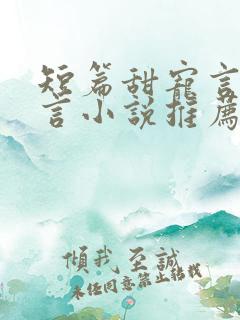 短篇甜寵言
言小說推薦
傾我至誠
未经同意禁止转载